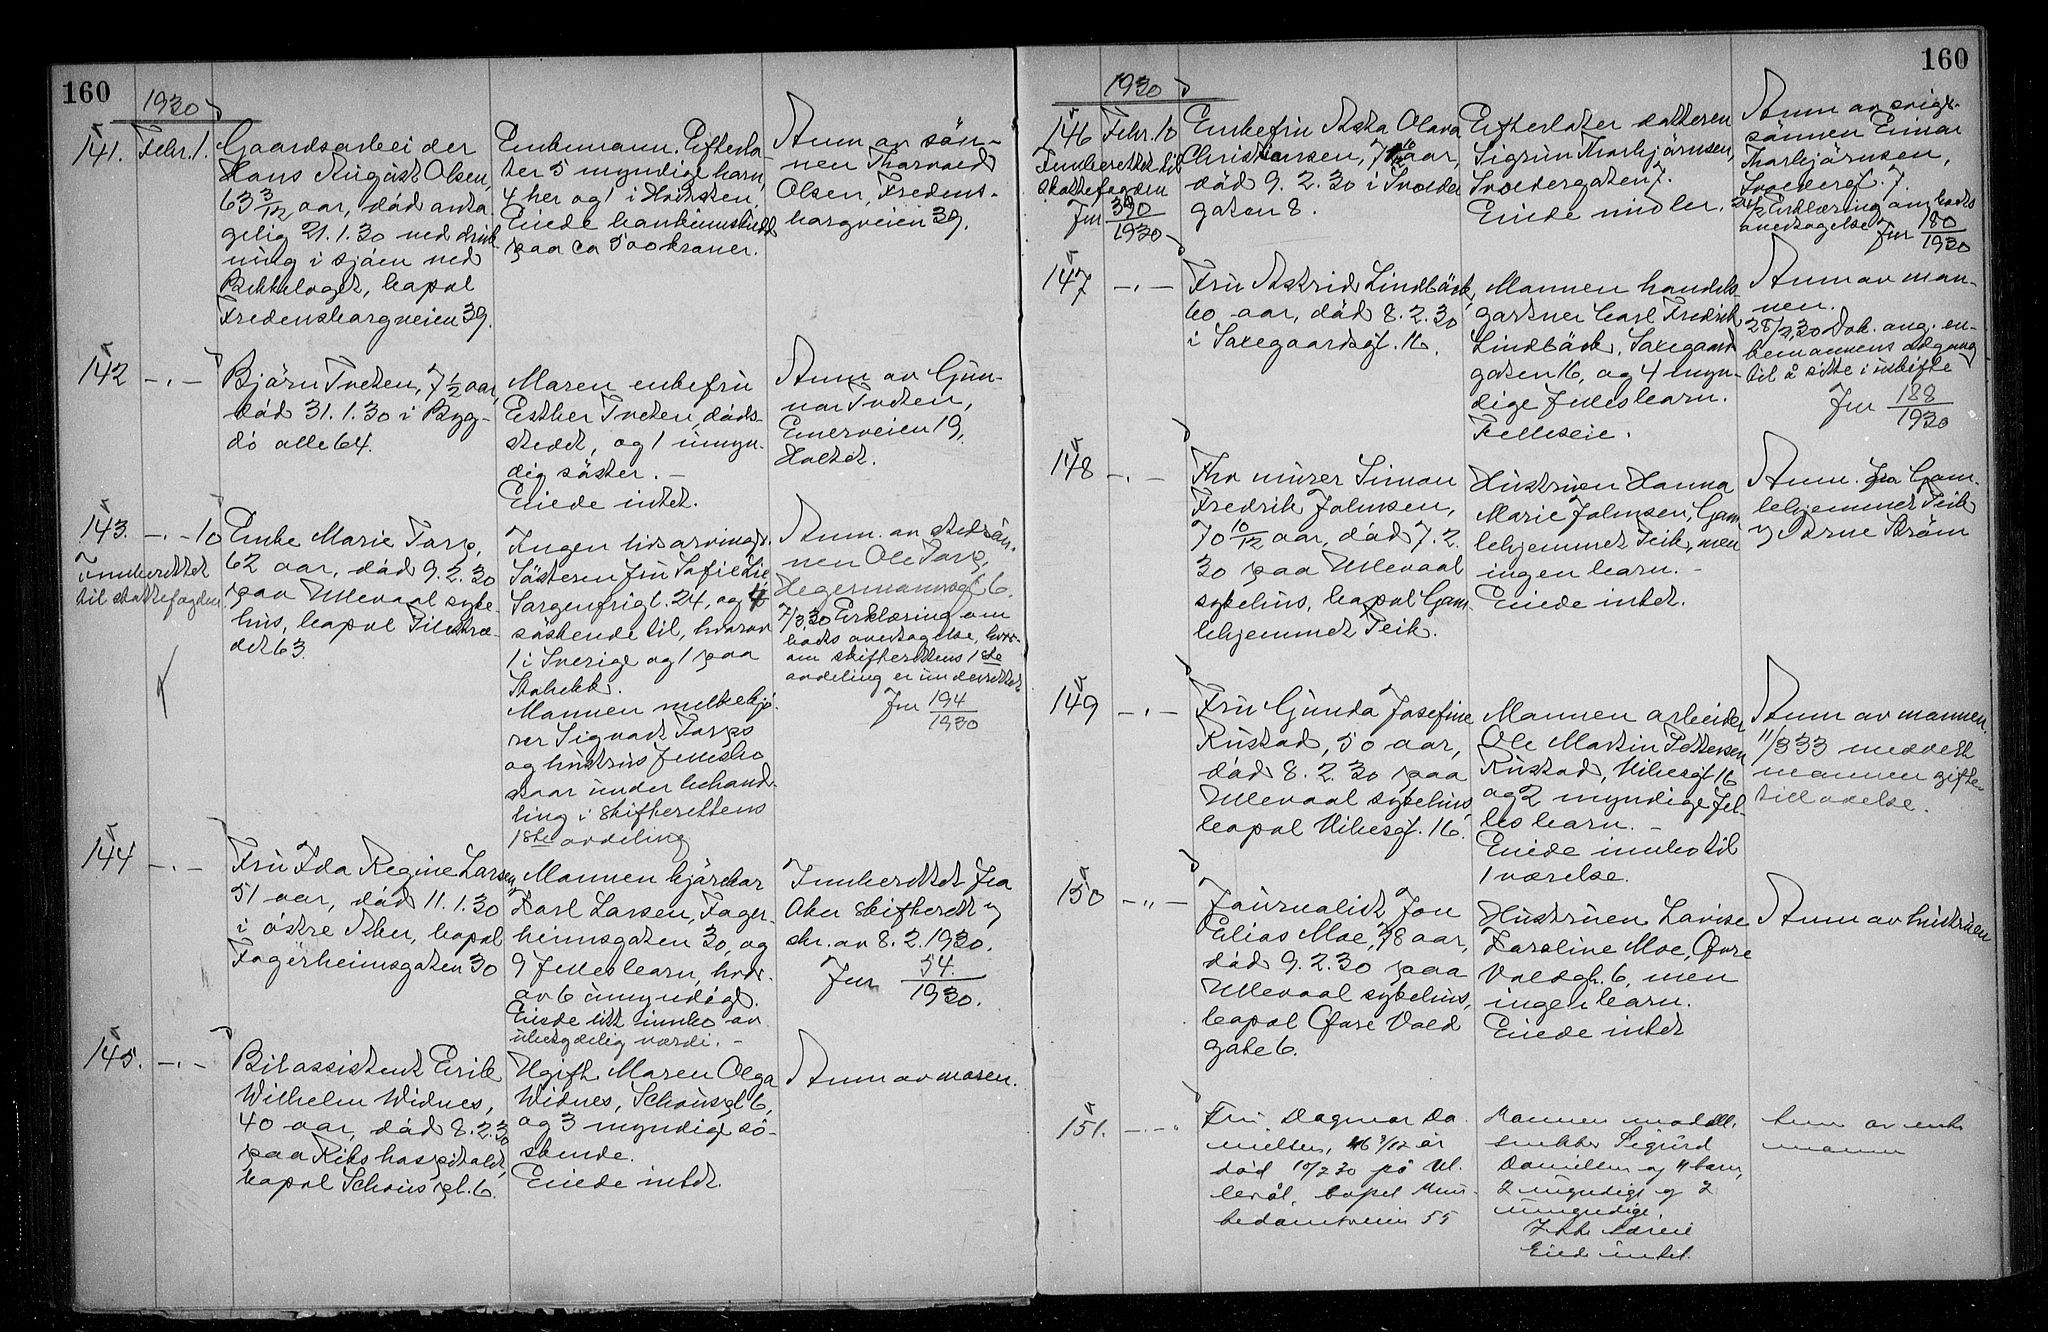 160
1930
141. Febr. 1.
Gaardsarbeider
Hans August Olsen,
63 3/12 aar, död anta
gelig 21.1.30 ved druk
ning i sjöen ved
Bekkelaget, bopæl
Fredensborgveien 39.
Enkemann. Efterla-
ter 5 myndige barn,
4 her og 1 i Horten.
Eiede bankinnskudd
paa ca 500 kroner.
Anm av sön-
nen Thorvald
Olsen, Fredens-
borgveien 39.
142 -.-
Björn Tveten, 7 1/2 aar,
död 31.1.30 i Byg-
dö alle 64.
Moren enkefru
Esther Tveten, döds-
stedet, og 1 umyn-
dig söster. -
Eiede intet.
Anm av Gun-
nar Tveten,
Enerveien 19,
Holtet.
143. -.- 10
Innberettet
til skattefogden
Enke Marie Torp,
62 aar, död 9.2.30
paa Ullevaal syke-
hus, bopæl Pilestræ-
det 63.
Ingen livsarvinger.
Sösteren fru Sofie Lie
Sorgenfrigt. 24, og 4
söskende til, hvorav
1 i Sverige og 1 paa
Stabekk.
Mannen melkekjö-
rer Sigvart Torps
og hustrus fellesbo
staar under behand-
ling i skifterettens
1ste avdeling
Anm. av stedsön-
nen Ole Torp,
Hegermannsgt 6.
7/3.30 Erklæring om
boets overtagelse, hvor-
om skifterettens 1ste
avdeling er underrettet
Jnr 194/1930
144 -.-
Fru Ida Regine Larsen,
51 aar, död 11.1.30
i östre Aker, bopæl
Fagerheimsgaten 30
Mannen kjörekar
Karl Larsen, Fager-
heimsgaten 30, og
9 fellesbarn, hvor-
av 6 umyndige.
Eiede litt innbo av
ubetydelig værdi. -
Innberettet fra
Aker skifterett i
skr. av 8.2.1930.
Jnr 54/1930.
145. -.-
Bilassistent Erik
Wilhelm Widnes,
40 aar, död 8.2.30
paa Rikshospitalet,
bopæl Schous pl. 6.
Ugift. Moren Olga
Widnes, Schouspl 6,
og 3 myndige sö-
skende.
Eiede intet.
Anm av moren.
160
1930
146 Febr. 10
Innberettet til
skattefogden
Jnr 390/1930
Enkefru Asta Olava
Christiansen, 71 aar,
död 9.2.30 i Svolder
gaten 8.
Efterlater datteren
Sigrun Thorbjörnsen,
Svoldergaten 7.
Eiede midler.
Anm av sviger-
sönnen Einar
Thorbjörnsen,
Svoldergt. 7.
Erklæring om boets
overtagelse Jnr 180/1930
147 -.-
Fru Astrid Lindbäck,
60 aar, död 8.2.30
i Saxegaardsgt. 16.
Mannen handels-
gartner Carl Fredrik
Lindbäck, Saxegaard
gaten 16, og 4 myn-
dige fellesbarn.
Felleseie.
Anm av man-
nen.
28/2.30 Dok. ang. en-
kemannens adgang
til å sitte i uskifte
Jnr 188/1930
148 -.-
Fhv murer Simon
Fredrik Johnsen,
70 10/12 aar, död 7.2.
30 paa Ullevaal
sykehus, bopæl Gam
lehjemmet Eeik.
Hustruen Hanna
Marie Johnsen, Gam
lehjemmet Eeik, men
ingen barn. -
Eiede intet.
Anm. fra Gam-
lehjemmet Eeik
v Arne Ström
149 -.-
Fru Gunda Josefine
Rustad, 50 aar,
död 8.2.30 paa
Ullevaal sykehus,
bopæl Vibesgt. 16.
Mannen arbeider
Ole Martin Pettersen
Rustad, Vibesgt 16
og 2 myndige fel-
lesbarn. -
Eiede innbo til
1 værelse.
Anm av mannen.
11/3 33 meddelt
mannen gifte-
tillatelse.
150 -"-
Journalist Jon
Elias Moe, 78 aar,
död 9.2.30 paa
Ullevaal sykehus,
bopæl Övre Vold
gate 6.
Hustruen Lovise
Karoline Moe, Övre
Voldgt. 6, men
ingen barn.
Eiede intet
Anm av hustruen
151. -.-
Fru Dagmar Da
nielsen, 46 7/12 år
död 10/2 30 på Ul-
levål, bopel Mun-
kedamsveien 55
Mannen modell-
snekker Sigurd
Danielsen og 4 barn,
2 myndige og 2
umyndige.
Ikke særeie
Eiede intet.
Anm av enke
mann